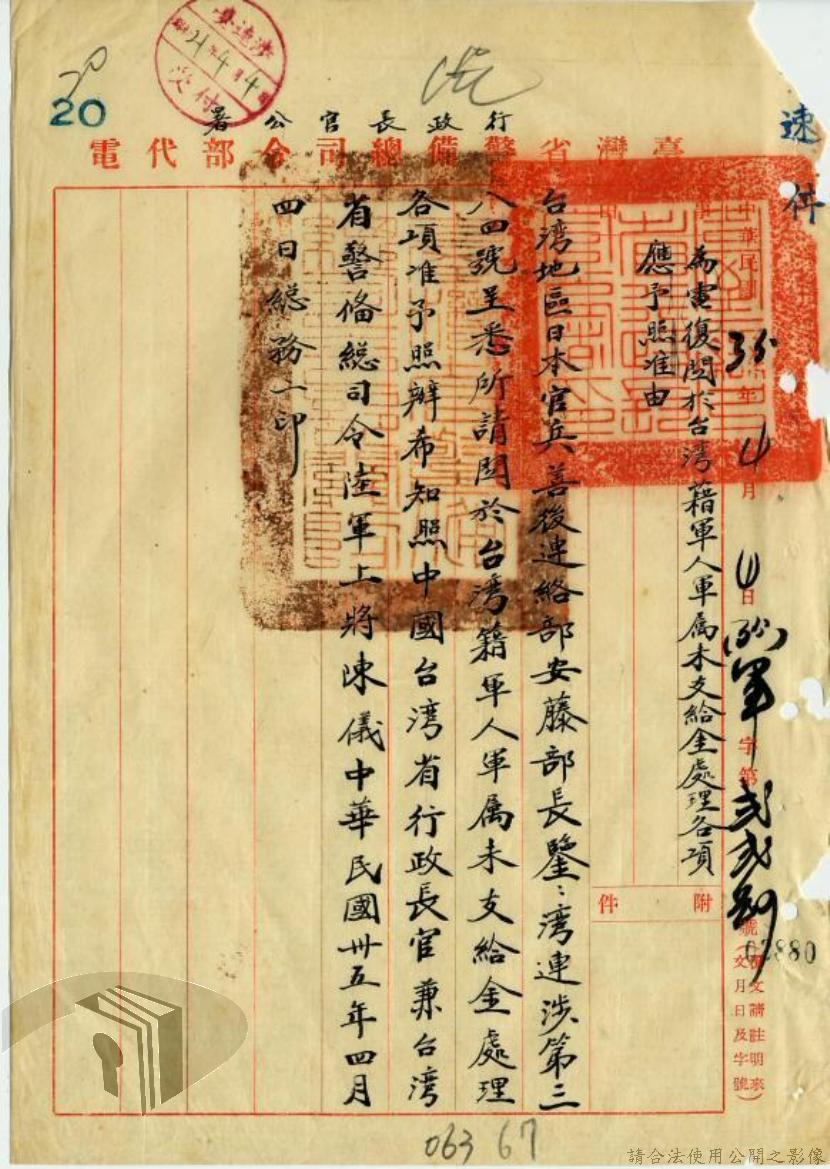 速件
行政長官公署
臺灣省警備總司令部代電
中華民國35年4月4日
軍字第
號
02880
(復文請註明來文月日及字號)
事由
為電復関於台湾籍軍人軍属未支給金處理各項
應予照准由
附件
台湾地區日本官兵善後連絡部安藤部長鑒:湾連涉第三
八四號呈悉所請関於台湾籍軍人軍属未支給金處理
各項准予照辦希知照中國台湾省行政長官兼台湾
省警俻総司令陸軍上將陳儀中華民國卅五年四月
四日総務一印
20
20
21.4.4
受付
063 67
請合法使用公開之影像